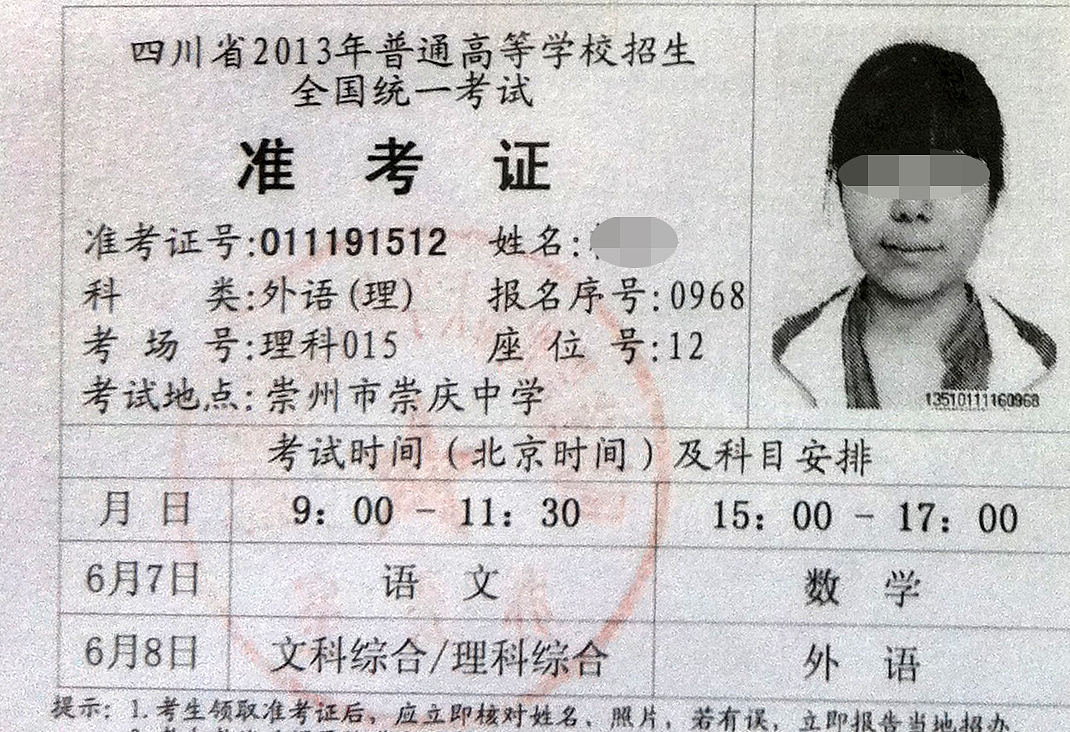 四川省2013年普通高等学校招生
全国统一考试
准 考 证
准考证号:011191512 姓名:
科 类:外语(理) 报名序号:0968
考 场 号:理科015 座 位 号:12
考试地点:崇州市崇庆中学
13510111160968
考试时间(北京时间)及科目安排
月 日 9:00-11:30 15:00-17:00
6月7日 语 文 数 学
6月8日 文科综合/理科综合 外 语
提示:1.考生领取准考证后,应立即核对姓名、照片,若有误,立即报告当地招办.